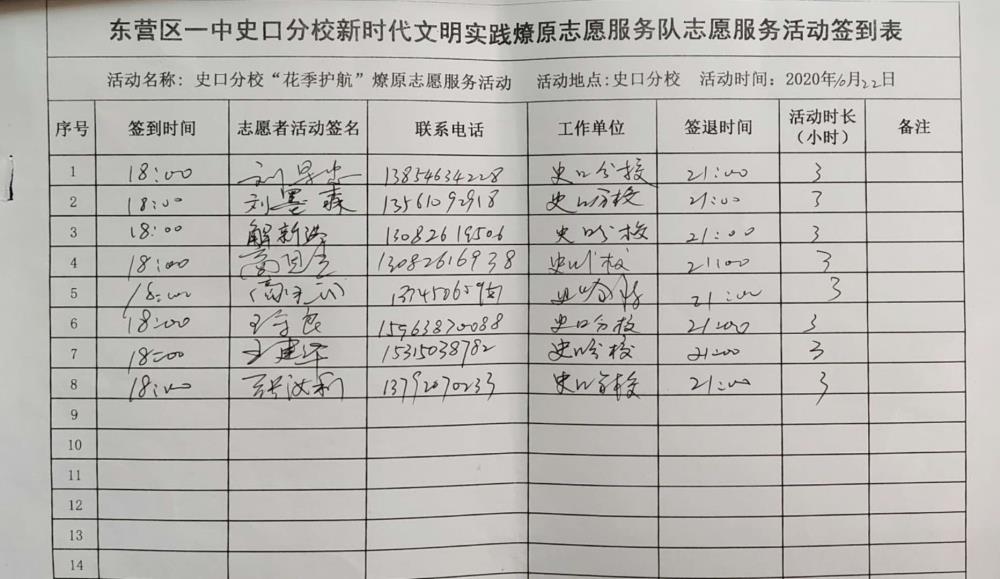 东营区一中史口分校新时代文明实践燎原志愿服务队志愿服务活动签到表
活动名称: 史口分校“花季护航”燎原志愿服务活动 活动地点:史口分校 活动时间: 2020年6月22日
序号 签到时间 志愿者活动签名 联系电话 工作单位 签退时间 活动时长(小时) 备注
1 18:00 刘 13854634228 史口分校 21:00 3
2 18:00 刘墨森 13561092918 史口分校 21:00 3
3 18:00 解新 13082619506 史口分校 21:00 3
4 18:00 13082616938 史口分校 21:00 3
5 18:00 史口分校 21:00 3
6 18:00 王 15963870088 史口分校 21:00 3
7 18:00 王建华 15315038782 史口分校 21:00 3
8 18:00 张洪利 13792070233 史口分校 21:00 3
9
10
11
12
13
14